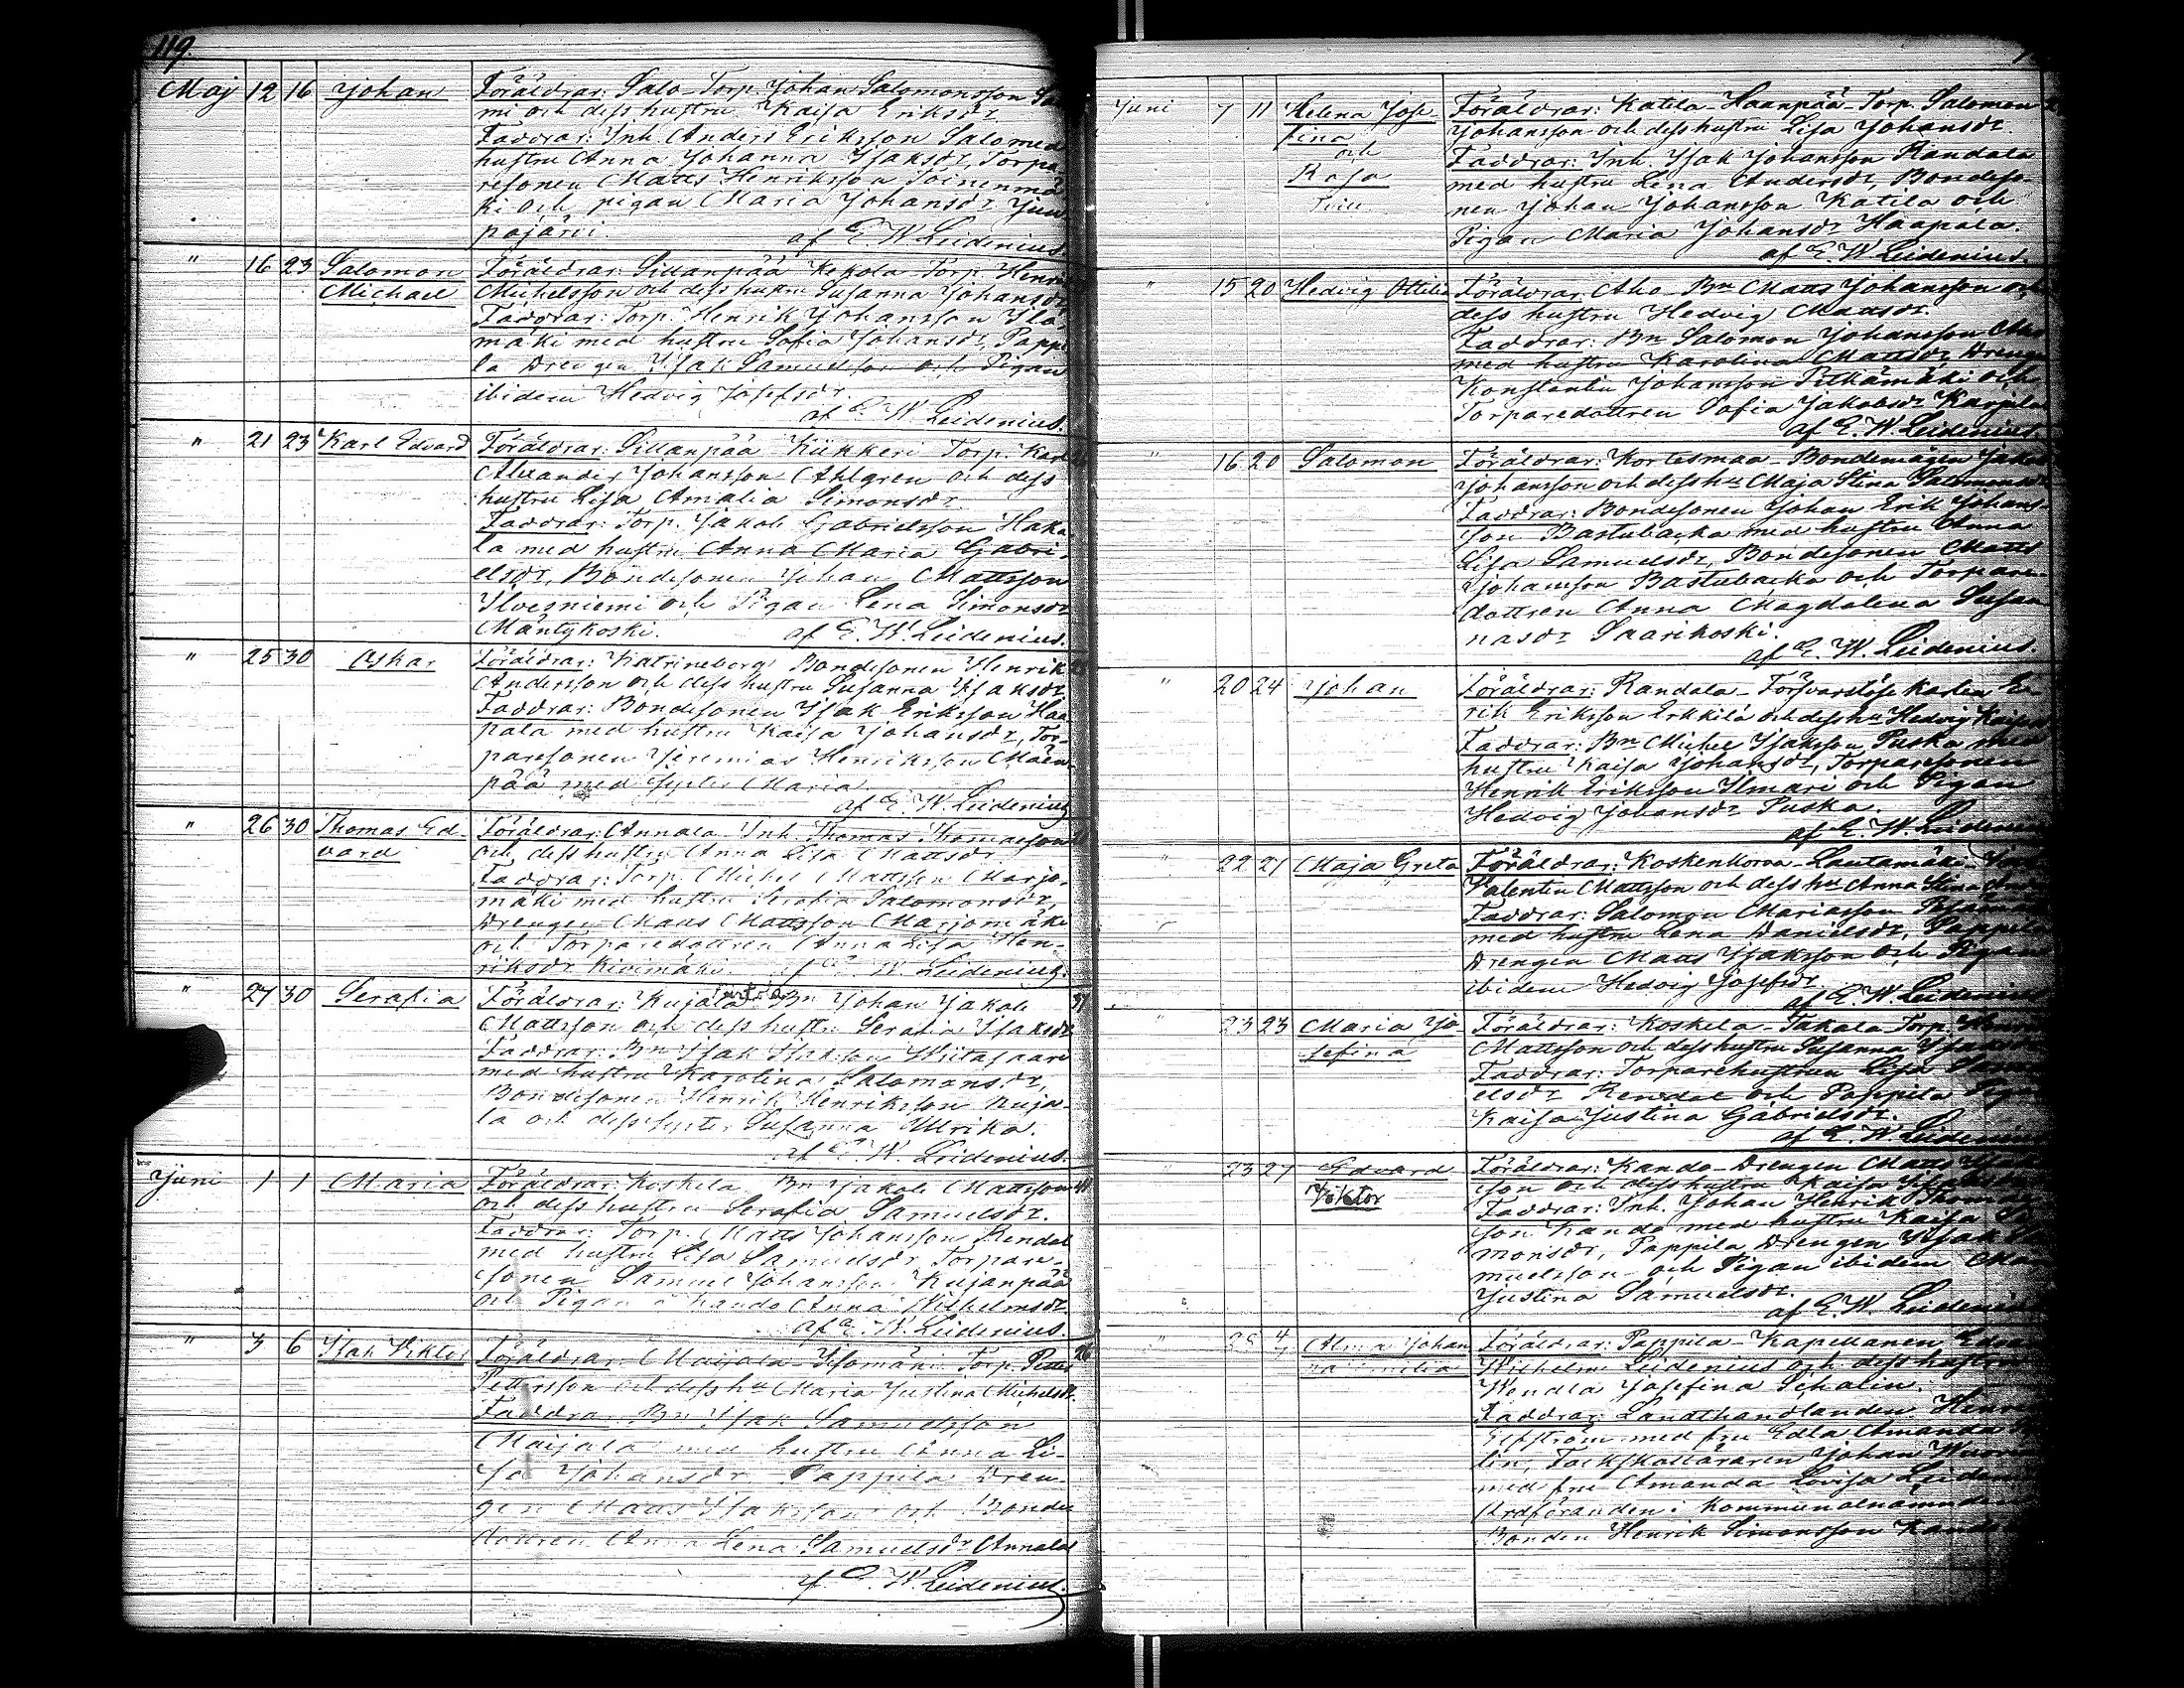 119.
Maj 12 16 Johan Föräldrar: Salo-Torp. Johan Salomonsson
mi och dess hustru Kaisa Eriksdr.
Faddrar: Inh. Anders Eriksson Salo med
hustru Anna Johanna Isaksdr, Torpa-
resonen Matts Henriksson Töinenmä-
ki och pigan Maria Johansdr
pajärvi.
af E. W. Leidenius.
" 16 23 Salomon Föräldrar: Sillanpää Kekola-Torp. Henrik
Michael Michelsson och dess hustru Susanna Johansdr
Faddrar: Torp. Henrik Johansson Ylä-
mäki med hustru Sofia Johansdr, Pappi-
la Drengen Isak Samuelsson och Pigan
ibidem Hedvig Josefsdr.
af E. W. Leidenius.
" 21 23 Karl Edvard Föräldrar: Sillanpää Kiikkeri Torp. Karl
Alexander Johansson Ahlgren och dess
hustru Lisa Amalia Simonsdr
Faddrar: Torp. Jakob Gabrielsson Haka-
la med hustru Anna Maria Gabri-
elsdr, Bondesonen Johan Mattsson
Ilvesniemi och Pigan Lena Simonsdr
Mäntykoski.
af E. W. Leidenius.
" 25 30 Oskar Föräldrar: Katrineberg Bondesonen Henrik
Andersson och dess hustru Susanna Isaksdr.
Faddrar: Bondesonen Isak Eriksson Haa-
pala med hustru Kaisa Johansdr, Tor-
paresonen Jeremias Henriksson Mäen-
pää med syster Maria.
af E. W. Leidenius
" 26 30 Thomas Ed- Föräldrar: Annala Inh. Thomas Thomasson
vard och dess hustru Anna Lisa Mattsdr.
Faddrar: Torp. Michel Mattsson Marjo-
mäki med hustru Serafia Salomonsdr,
Drengen Matts Mattsson Marjomäki
och Torparedottren Anna Lisa Hen-
riksdr Kivimäki. af E. W. Leidenius.
" 27 30 Serafia Föräldrar: Kujala Bn Johan Jakob
Mattsson och dess hustru Serafia Isaksdr
Faddrar: Bn Isak Isaksson Wiitasaari
med hustru Karolina Salomonsdr,
Bondesonen Henrik Henriksson Kuja-
la och dess syster Susanna Ulrika.
af E. W. Leidenius.
Juni 1 1 Maria Föräldrar: Koskela Bn Jakob Mattsson
och dess hustru Serafia Samuelsdr.
Faddrar: Torp. Matts Johansson Rendal
med hustru Lisa Samuelsdr Torpare-
sonen Samuel Johansson Kujanpää
och Pigan å Kando Anna Wilhelmsdr.
af E. W. Leidenius.
" 3 6 Isak Viktor Föräldrar: Maijala-Isomäki Torp. Petter
Pettersson och dess hu Maria Justina Michelsdr.
Faddrar Bn Isak Samuelsson
Maijala med hustru Anna Li-
sa Johansdr Pappila Dren-
gen Matts Isaksson och Bonde
dottren Anna Lena Samuelsdr Annala
af E. W. Leidenius.
Juni 7 11 Helena Jose- Föräldrar: Katila-Haanpää-Torp. Salomon
fina Johansson och dess hustru Lisa Johansdr.
och Faddrar: Inh. Isak Johansson Randala
Kajsa med hustru Lina Andersdr, Bondeso-
nen Johan Johansson Katila och
Pigan Maria Johansdr Haapala.
af E. W. Leidenius.
" 15 20 Hedvig Ottilia Föräldrar: Aho-Bn Matts Johansson och
dess hustru Hedvig Mattsdr.
Faddrar: Bn Salomon Johansson Aho
med hustru Karolina Mattsdr, Dreng
Konstantin Johansson Pitkämäki och
Torparedottren Sofia Jakobsdr Karjala
af E. W. Leidenius.
" 16 20 Salomon Föräldrar: Kortesmaa-Bondemågen Jakob
Johansson och dess hu Maja Stina Salomonsdr
Faddrar: Bondesonen Johan Erik Johans-
son Bastubacka med hustru Anna
Lisa Samuelsdr, Bondesonen Matts
Johansson Bastubacka och Torpare-
dottren Anna Magdalena Susan-
nasdr Saarikoski.
af E. W. Leidenius.
" 20 24 Johan Föräldrar: Randala-Försvarslöse karlen E-
rik Eriksson Erkkilä och dess hu Hedvig
Faddrar: Bn Michel Isaksson Puska med
hustru Kaisa Johansdr, Torparesonen
Henrik Eriksson Ilmari och Pigan
Hedvig Johansdr Puska.
af E. W. Leidenius
" 22 27 Maja Greta Föräldrar: Koskenkorva-Lautamäki
Valentin Mattsson och dess hu Anna Stina
Faddrar: Salomon Mariasson
med hustru Lena Danielsdr, Pappila
Drengen Matts Isaksson och Pigan
ibidem Hedvig Josefsdr
af E. W. Leidenius
" 23 23 Maria Jo- Föräldrar: Koskela-Takala-Torp.
sefina Mattsson och dess hustru Susanna
Faddrar: Torparehustrun Lisa Samu-
elsdr Rendal och Pappila Pigan
Kaisa Justina Gabrielsdr.
af E. W. Leidenius
" 23 27 Edvard Föräldrar: Kando-Drengen Matts
Viktor son och dess hustru Kaisa
Faddrar: Inh. Johan Henrik
son Kando med hustru Kaisa Si-
monsdr, Pappila Drengen Isak Sa-
muelsson och Pigan ibidem
Justina Samuelsdr.
af E. W. Leidenius
" 4/7 Alma Johan- Föräldrar: Pappila-Kapellanen
na Emilia Wilhelm Leidenius och dess hustru
Wendla Josefina Schalin.
Faddrar: Landthandlanden
med fru Edla Amanda
lin, Johan
med fru Amanda Lovisa
Ordföranden i kommunalnämnden
Bonden Henrik Simonsson Kando